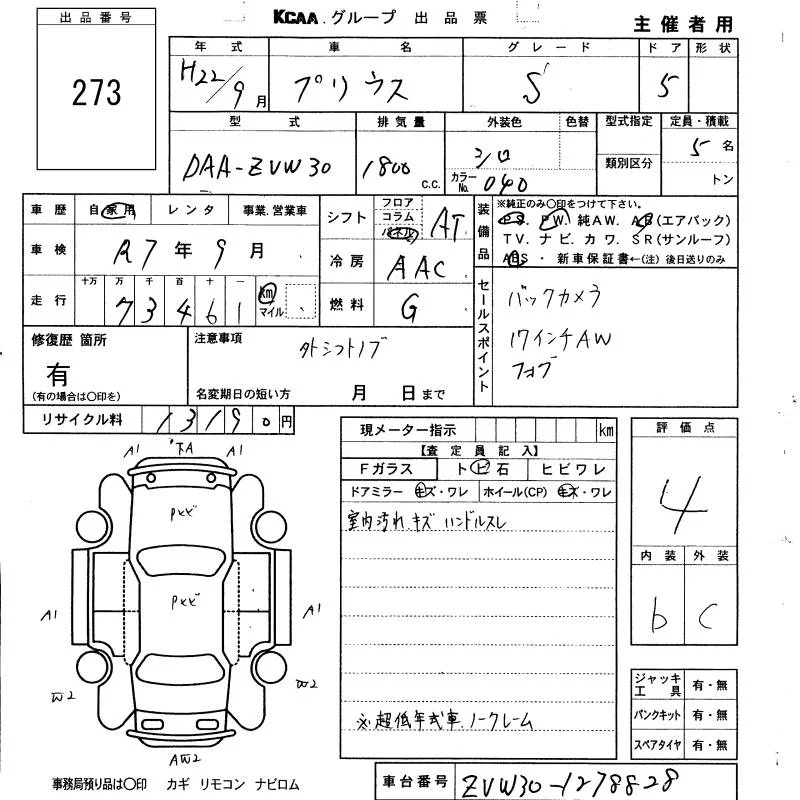 出品番号
KCAA.グループ 出品票
主催者用
273
年式 車名 グレード ドア 形状
H22/9月 プリウス S 5
型式 排気量 外装色 色替 型式指定 定員・積載
DAA-ZVW30 1800 c.c. シロ 類別区分 5名
カラーNo. 040 トン
車歴 自家用 レンタ 事業.営業車 シフト フロア コラム パネル AT
装備品 ※純正のみ〇印をつけて下さい。
PS. PW. 純AW. AB(エアバック)
TV. ナビ. カワ. SR(サンルーフ)
ABS ・ 新車保証書←(注)後日送りのみ
車検 R7年9月 冷房 AAC
走行 十万 万 千 百 十 一
73461 km マイル 燃料 G
セールスポイント
バックカメラ
17インチAW
修復歴 箇所
有
(有の場合は〇印を)
注意事項
外シフトノブ
名変期日の短い方 月 日まで
リサイクル料 13190円
現メーター指示 km
【査定員記入】
Fガラス トビ石 ヒビワレ
ドアミラー キズ・ワレ ホイール(CP) キズ・ワレ
室内汚れ キズ ハンドルスレ
※超低年式車ノークレーム
評価点
4
内装 外装
b C
A1 下A A1
Pキズ
Pキズ
A1 A1
W2 W2
AW2
ジャッキ工具 有・無
パンクキット 有・無
スペアタイヤ 有・無
事務局預り品は〇印 カギ リモコン ナビロム
車台番号 ZVW30-1278828